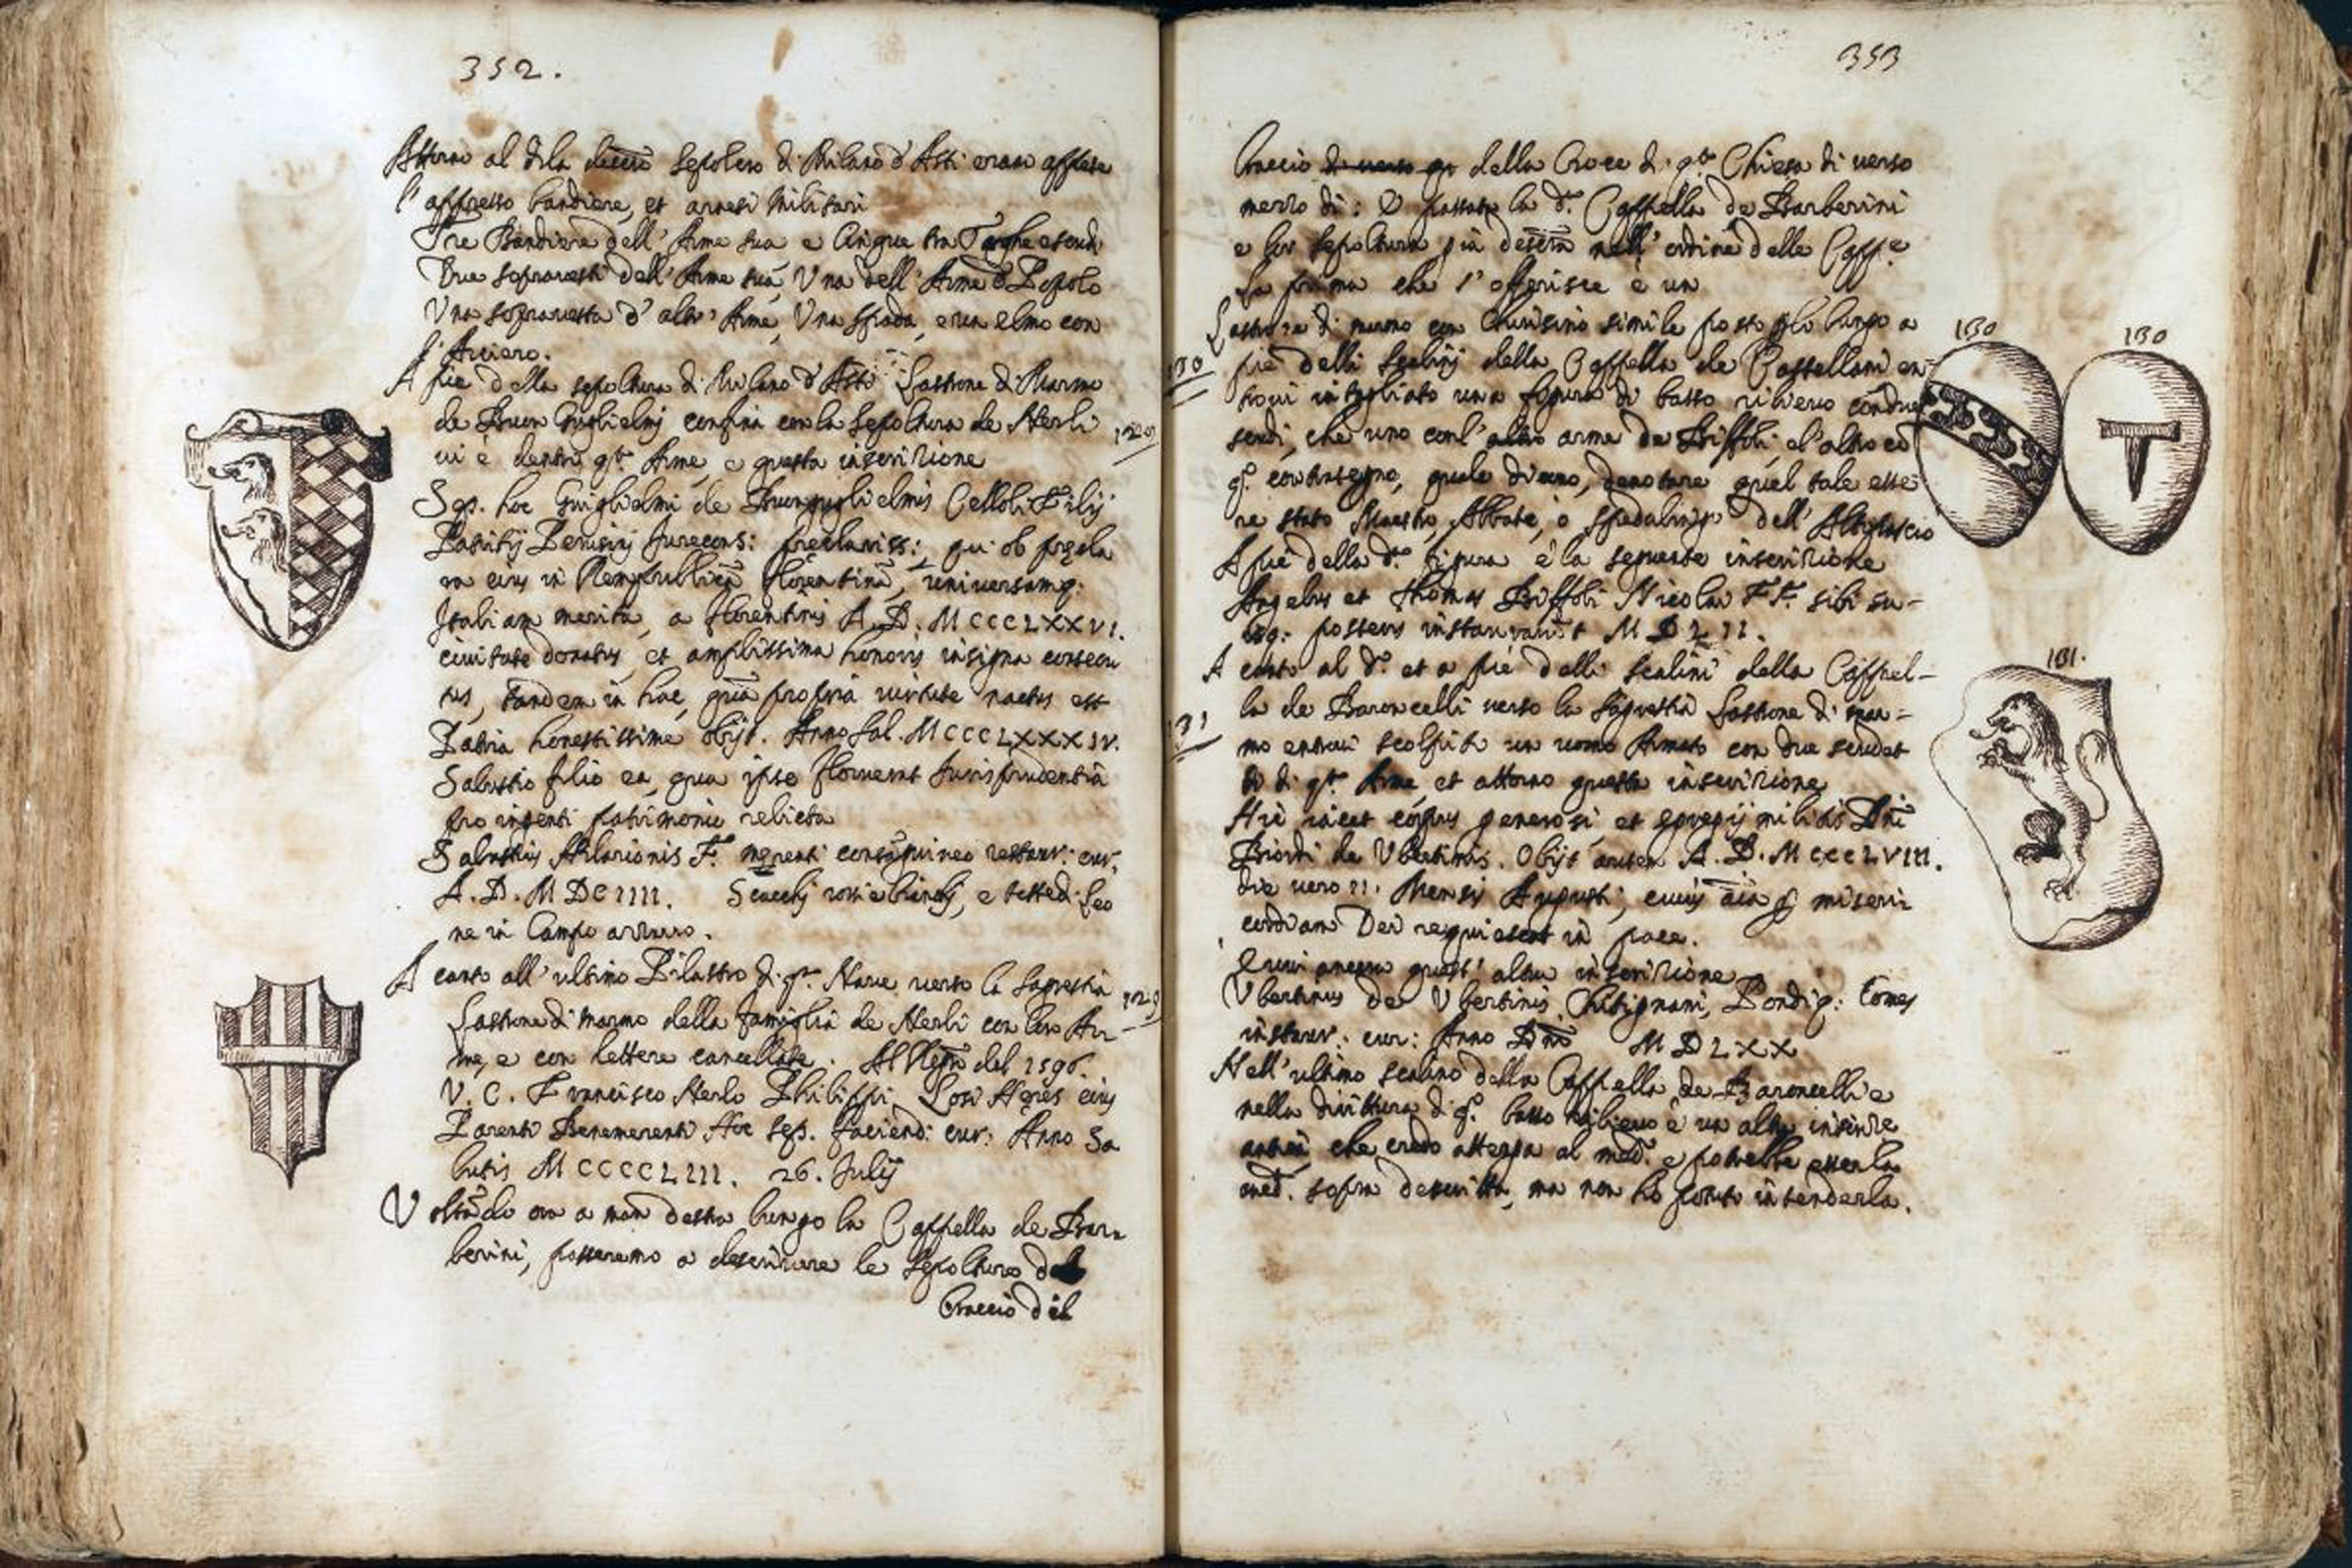 352.
Attorno al di la decto sepolcro di Milano d'Asti erano appese
l'appresso bandiere, et arnesi militari
Tre Bandiere dell'Arme sua e Cinque tra Targhe e scudi
Due sopravesti dell'Arme sua, Una dell'Arme d Popolo
Una sopravesta d'altr'Arme, Una spada, e un elmo con
A pie della sepoltura di Milano d'Asti Lastrone di Marmo
de Buon Guglielmj confina con la sepoltura de Nerli
129
vi è dentro qta Arme, e questa inscritione
Sep. hoc Guiglielmi de Buonguglielmis Celloli Filij
Patritij Perusinj Jurecons: preclariss: qui ob pręcla
ra eius in Rempublicã Florentinã, universamq:
Italiam merita, a Florentinis A. D. MCCCLXXVI.
civitate donatus, et amplissima honoris insigna consecu
tus, tandem in hac, quã propria virtute nactus est
Patria honestissime obijt. Anno Sal. MCCCLXXXIV.
Salustio filio ea, qua ipse floruerat Jurisprudentia
pro ingenti patrimonio relicta
Salustius Hilarionis F. merenti consãguineo restaur: cur.
A. D. MDCIIII. Scacchj rossi e bianchj, e teste di Leo
ne in Campo azzurro.
A canto all'ultimo Pilastro di qta Nave verso la sagrestia
129
Lastrone di marmo della famiglia de Nerli con loro Ar
me, e con lettere cancellate. Al del 1596.
V. C. Francisco Nerlo Philippi Losi Hęres eius
Parenti Benemerenti Hoc sep. faciend: cur: Anno Sa
lutis MCCCCLIII. 26. Julij
Voltãdo ora a man destra lungo la Cappella de Bar
berini, passeremo a descrivere le sepolture del
braccio del
353
braccio della Croce di qta Chiesa di verso
mezzo di: E passata la da Cappella de Barberini
e lor sepoltura già descrã nell'ordine delle Cappe
La prima che s'offerisce è un
130
130
Lastrone di marmo con chiusino simile posto p lo lungo a
130
pie delli scalinj della Cappella de Castellani en-
trovi intagliato una figura di basso rilievo con due
scudi, che uno con l'altro arme de Biffoli, e l'altro cõ
qo contrasegno, quale dicono, denotare quel tale esse
re stato Maestro, Abbate, o spedalingo dell'Altopascio
A pie della da figura è la seguente inscritione
Angelus et Thomas Biffoli Nicolai FF. sibi su-
isq: posteris instaurarũt MDLII.
A canto al do et a pie delli scalini della Cappel-
131.
la de Baroncelli verso la sagrestia Lastrone di mar-
131
mo entrovi scolpito un uomo Armato con due scudet
ti di qta Arme, et attorno questa inscritione
Hic iacet corpus generosi et egregij militis Dñi
Biordi de Ubertinis. Obijt autem A. D. MCCCLVIII.
die vero II. Mensis Augusti, cuius aĩa p miseri
cordiam Dei requiescat in pace.
E quivi ancora quest'altra inscritione
Ubertinus de Ubertinis Chitignani, Comes
instaur: cur: Anno Dnĩ MDLXX
Nell'ultimo scalino della Cappella de Baroncelli e
nella dirittura di qo basso rilievo è un altra inscrit
che credo attenga al medo e potrebbe esser la
med. sopra descritta, ma non ho potuto intenderla.